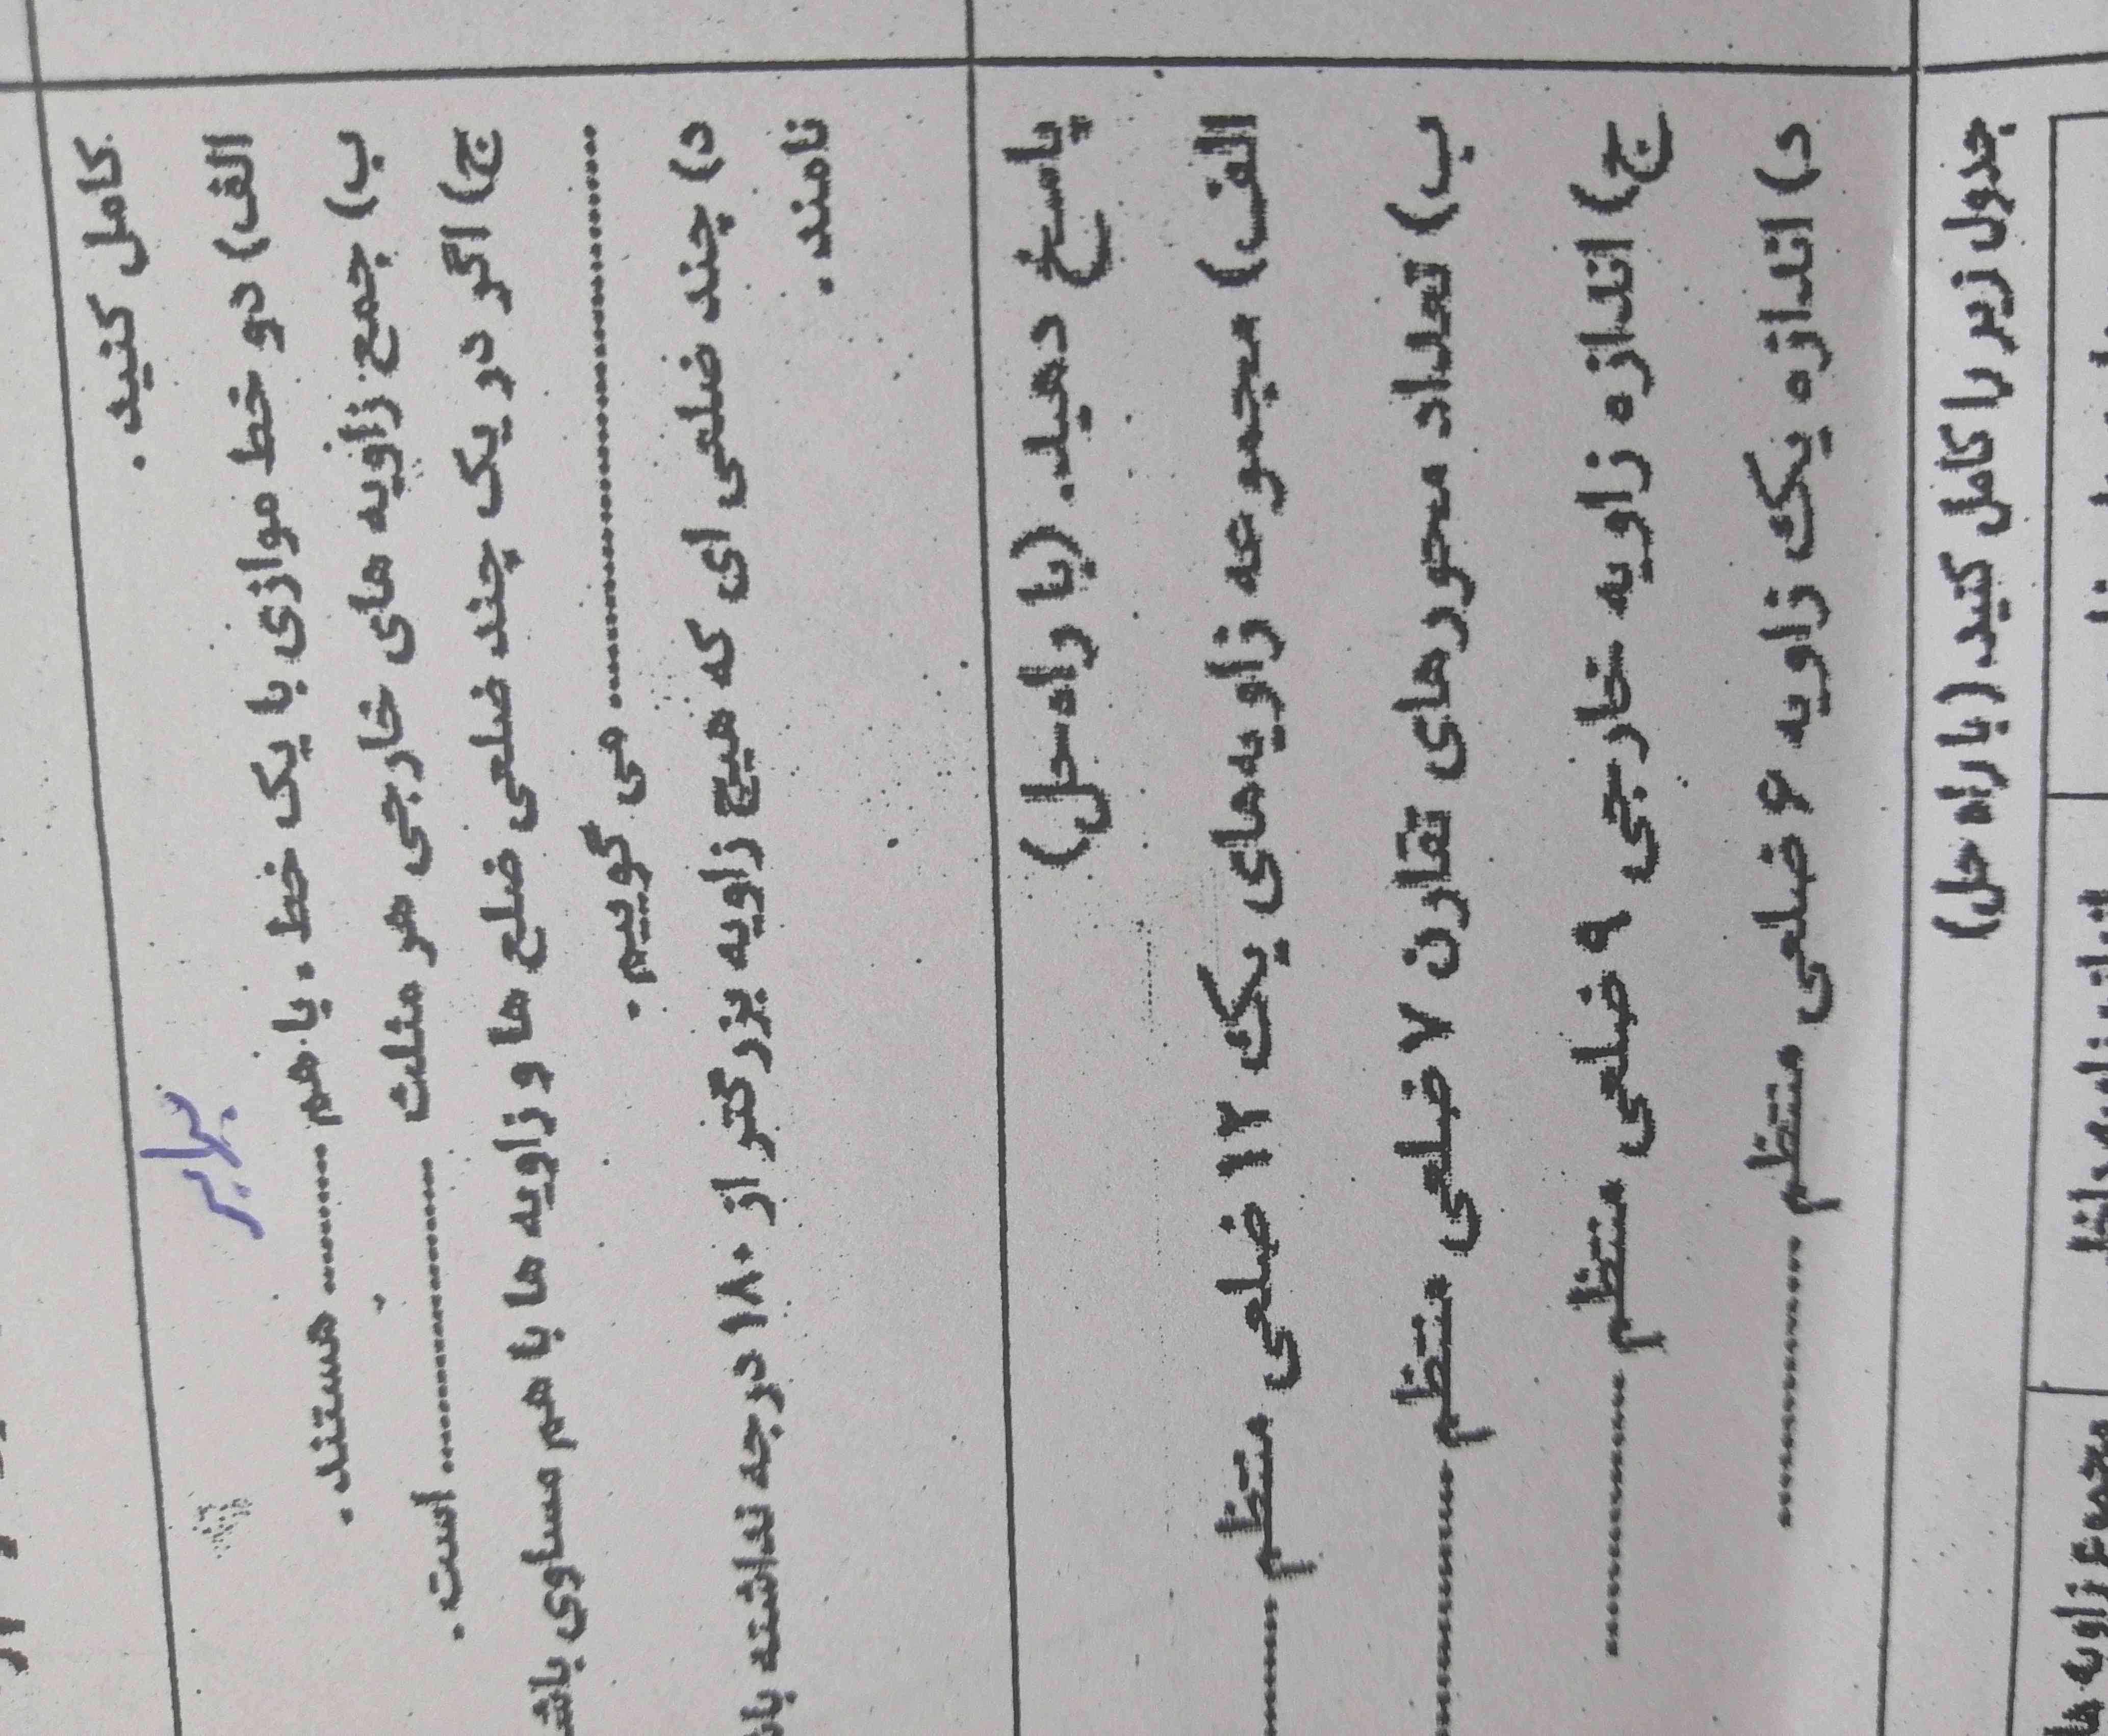 کامل کنید .
برابر
الف) دو خط موازی با یک خط . با هم ............ هستند .
ب) جمع زاویه های خارجی هر مثلث .................... است .
ج) اگر در یک چند ضلعی ضلع ها و زاویه ها با هم مساوی
.................................... می گوییم .
د) چند ضلعی ای که هیچ زاویه بزرگتر از ۱۸۰ درجه نداشته
نامند .
پاسخ دهید. (با راه حل)
الف) مجموعه زاویه‌های یک ۱۲ ضلعی منتظم ............
ب) تعداد محورهای تقارن ۷ ضلعی منتظم ................
ج) اندازه زاویه خارجی ۹ ضلعی منتظم ................
د) اندازه یک زاویه ۶ ضلعی منتظم ................
جدول زیر را کامل کنید. (با راه حل)
مجموع زاویه